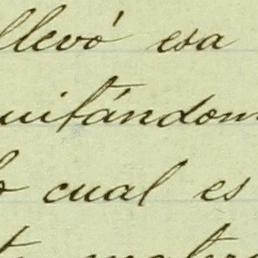 llevó esa
uitándom
lo cual es